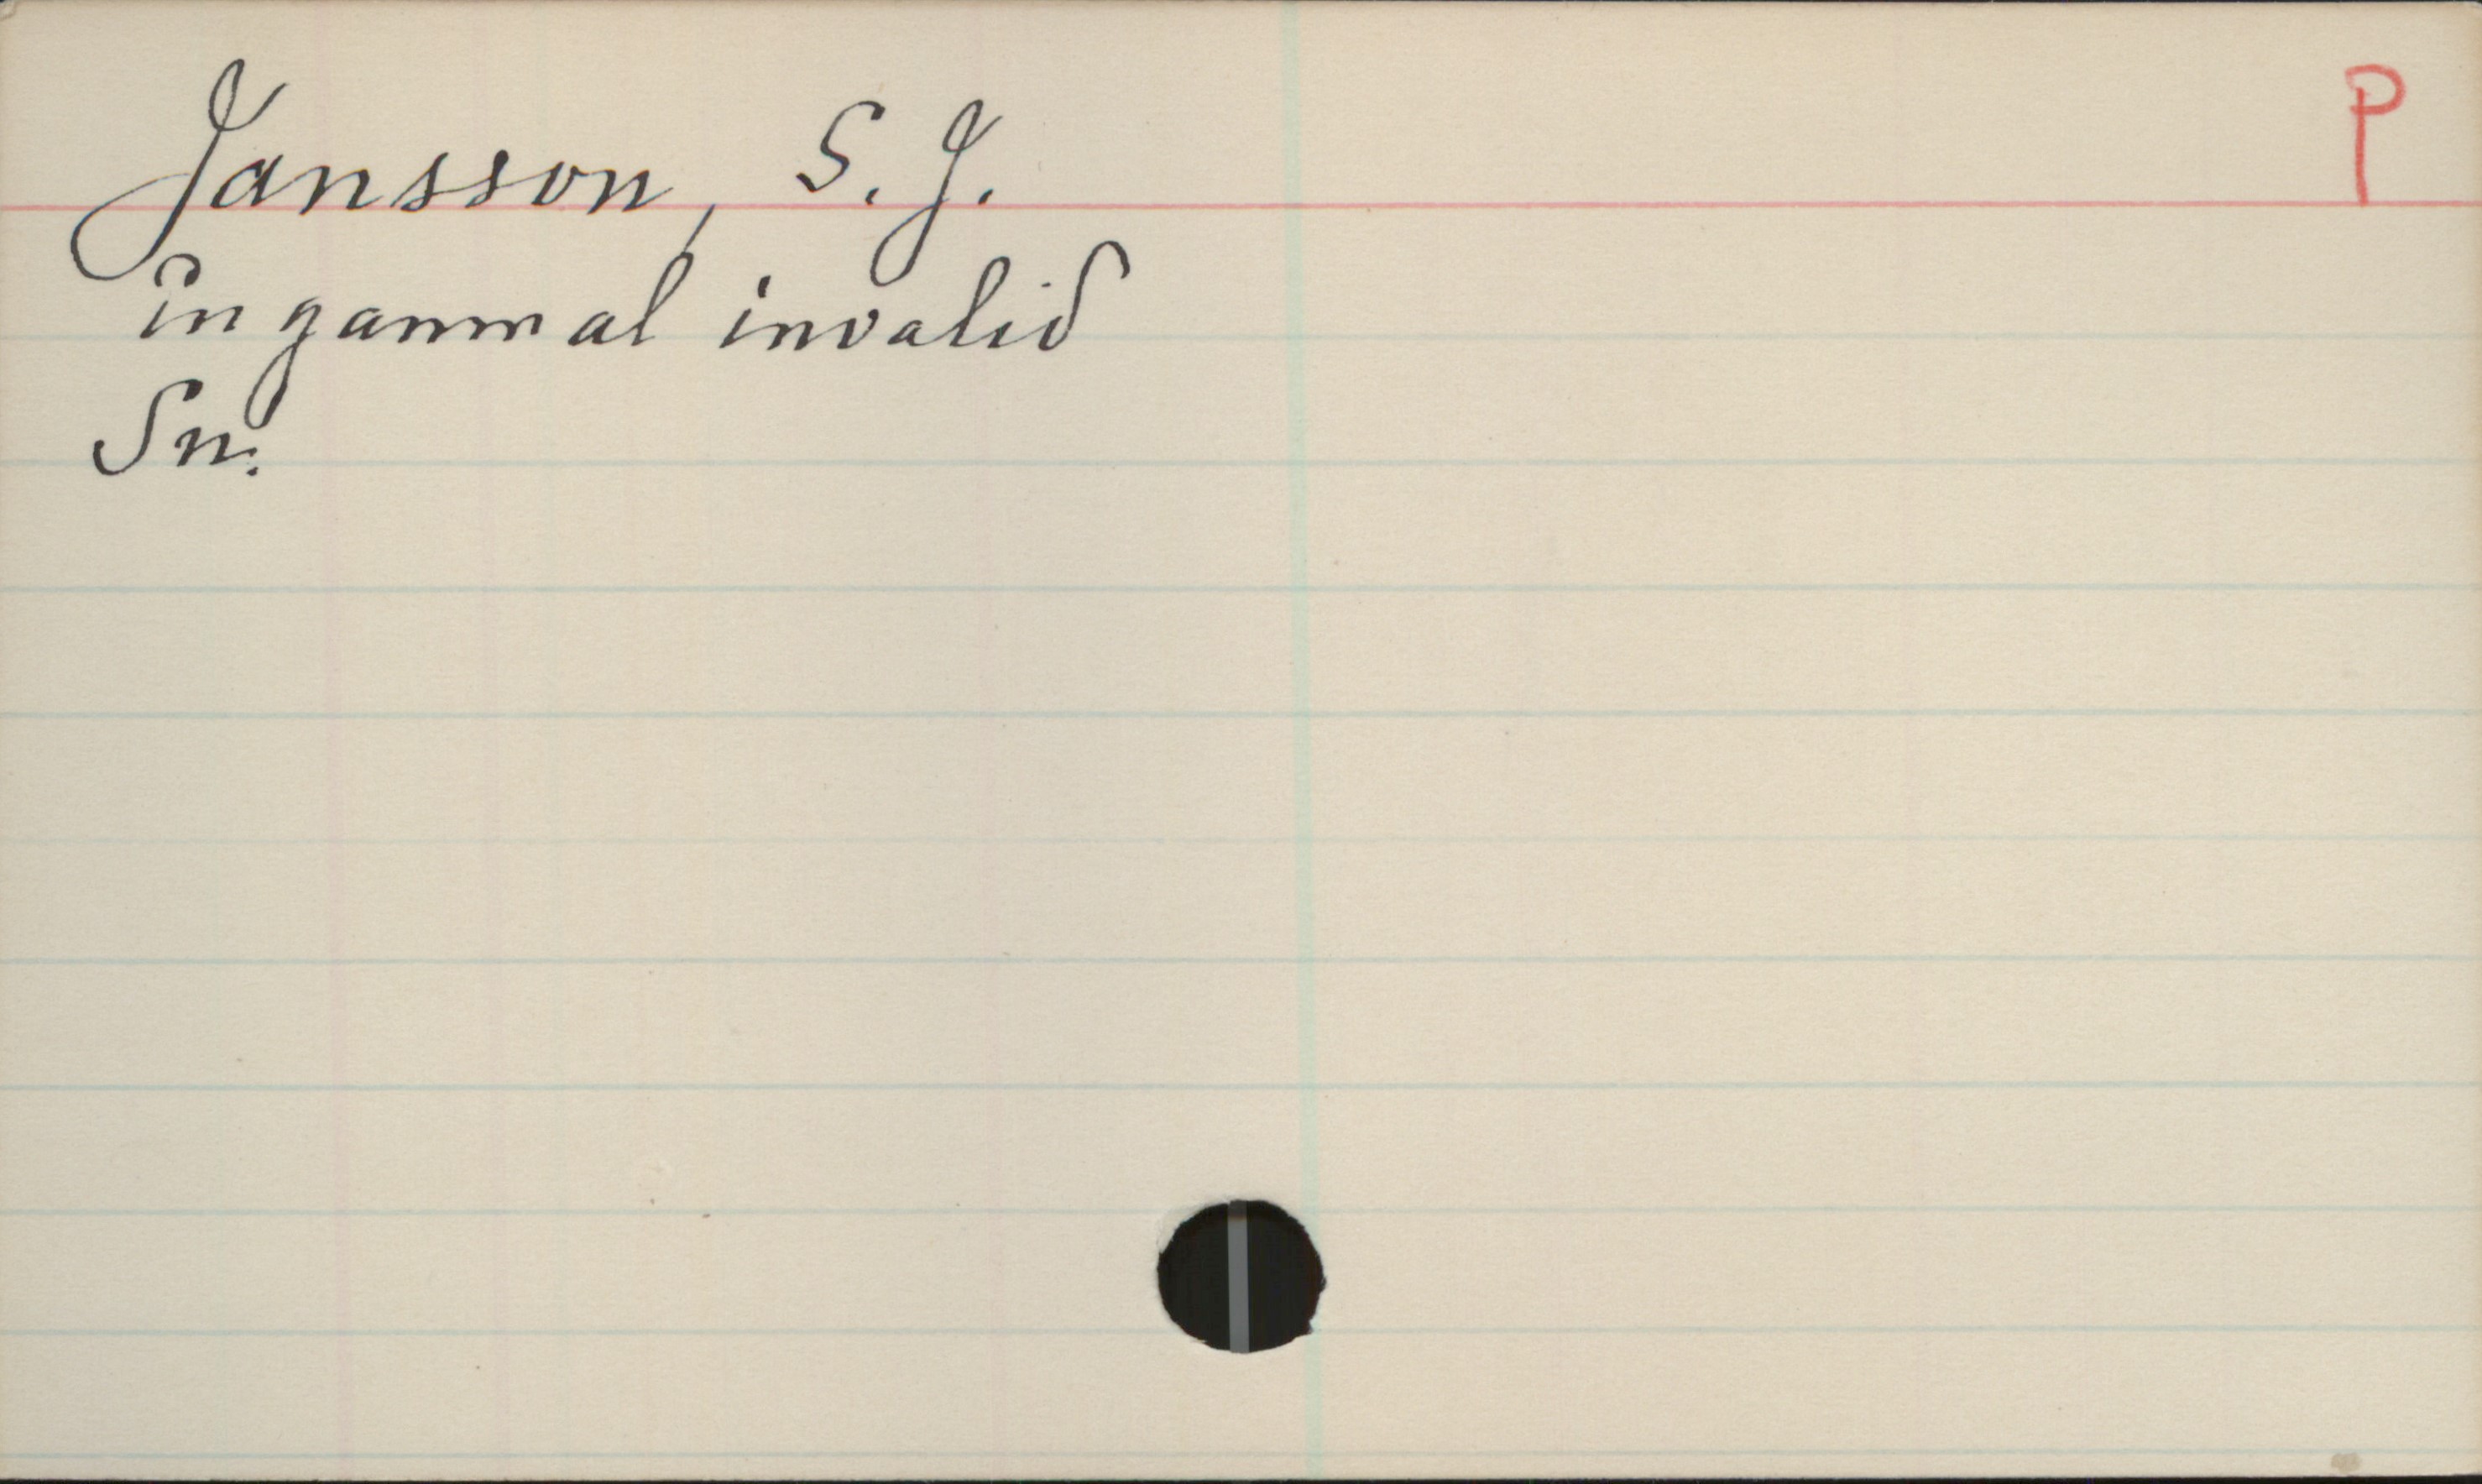 Jansson, S. J. P
En gammal invalid
Sn.